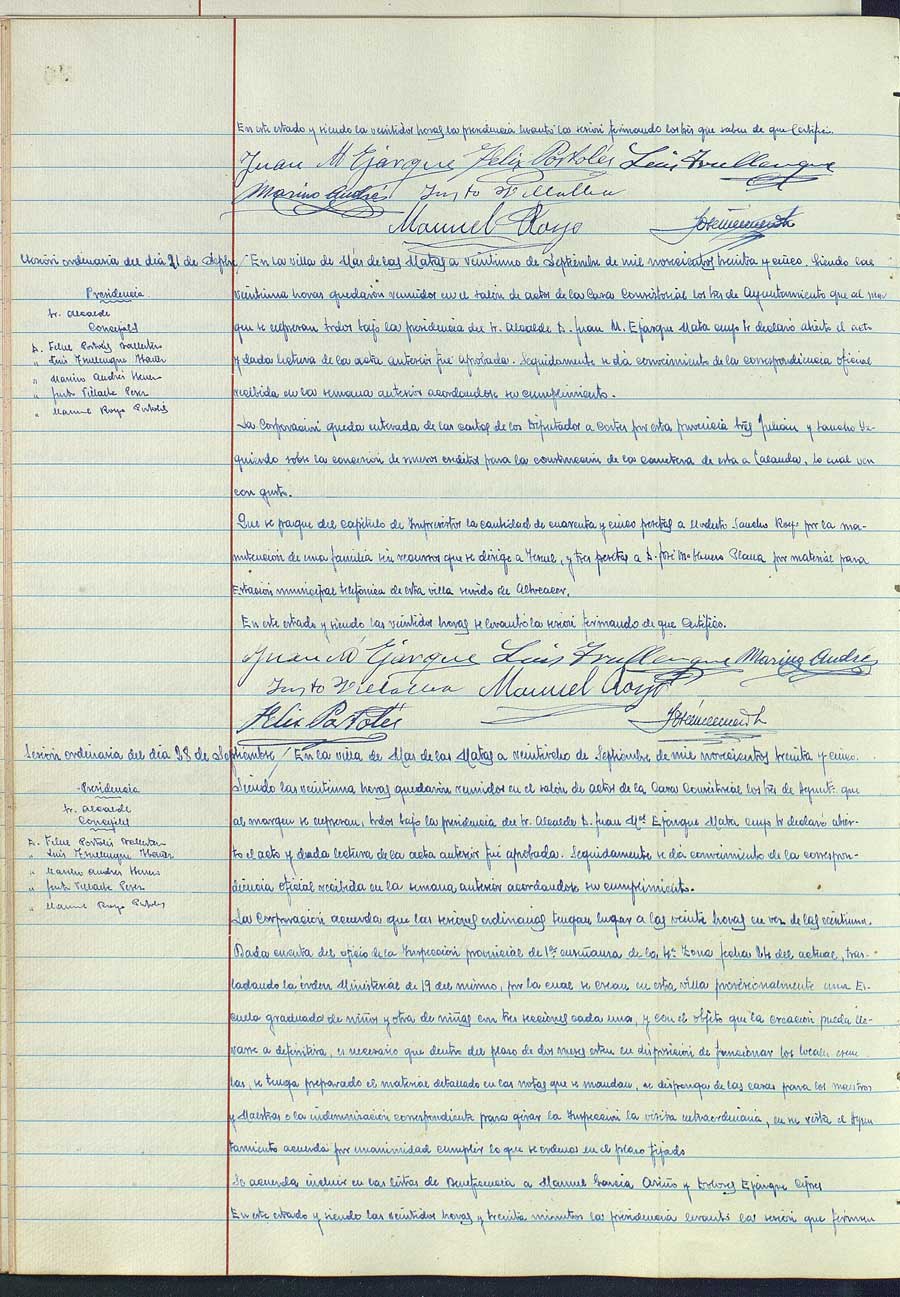 En este estado y siendo la veintidos horas la presidencia levantó la sesión firmando los tres que saben de que Certifico.
Juan M Ejarque Felix Portolés Luis Trullenque
Marino Andrés Justo Villalba
Manuel Royo
Sesión ordinaria del día 21 de Sepbre / En la villa de Mas de las Matas a veintiuno de Septiembre de mil novecientos treinta y cinco. Siendo las
Presidencia
Sr. Alcalde
Concejales
D. Felix Portolés Ballester
" Luis Trullenque
" Marino Andrés
" Justo Villalba Perez
" Manuel Royo Portolés
veintiuna horas quedaron reunidos en el salón de actos de la Casa Consistorial los tres de Ayuntamiento que al mar-
gen se expresan todos bajo la presidencia del Sr. Alcalde D. Juan M. Ejarque Mata cuyo Sr declaró abierto el acto
y dada lectura de la acta anterior fué aprobada. Seguidamente se da conocimiento de la correspondencia oficial
recibida en la semana anterior acordandose su cumplimiento.
La Corporación queda enterada de las cartas de los Diputados a Cortes por esta provincia Sres Julián y Sancho Iz-
quierdo sobre la concesión de nuevos creditos para la continuación de la carretera de esta a Calanda, lo cual ven
con gusto.
Que se pague del capitulo de Imprevistos la cantidad de cuarenta y cinco pesetas a Modesto Sancho Royo por la ma-
nutención de una familia sin recursos que se dirige a Teruel, y tres pesetas a D. José Mª Plana por material para
Estación municipal telefónica de esta villa servido de Alcocacer.
En este estado y siendo las veintidos horas se levantó la sesión firmando de que Certifico.
Juan M Ejarque Luis Trullenque Marino Andrés
Justo Villalba Manuel Royo
Felix Portolés
Sesión ordinaria del día 28 de Septiembre / En la villa de Mas de las Matas a veintiocho de Septiembre de mil novecientos treinta y cinco.
Presidencia
Sr. Alcalde
Concejales
D. Felix Portolés Ballester
" Luis Trullenque
" Marino Andrés
" Justo Villalba Perez
" Manuel Royo Portolés
Siendo las veintiuna horas quedaron reunidos en el salón de actos de la Casa Consistorial los tres de Ayuntº. que
al margen se expresan, todos bajo la presidencia del Sr. Alcalde D. Juan Mel Ejarque Mata cuyo Sr declaró abier-
to el acto y dada lectura de la acta anterior fué aprobada. Seguidamente se da conocimiento de la correspon-
dencia oficial recibida en la semana anterior acordandose su cumplimiento.
La Corporación acuerda que las sesiones ordinarias tengan lugar a las veinte horas en vez de las veintiuna.
Dada cuenta del oficio de la Inspección provincial de 1ª enseñanza de la 4ª Zona fecha 24 del actual, tras-
ladando la órden Ministerial de 19 del mismo, por la cual se crean en esta villa provisionalmente una Es-
cuela graduada de niños y otra de niñas con tres secciones cada una, y con el objeto que la creación pueda lle-
varse a definitiva, es necesario que dentro del plazo de dos meses esten en disposición de funcionar los locales escue-
las, se tenga preparado el material detallado en las notas que se mandan, se disponga de las casas para los maestros
y Maestras o la indemnización correspondiente para girar la Inspección la visita extraordinaria, en su vista el Ayun-
tamiento acuerda por unanimidad cumplir lo que se ordena en el plazo fijado
Se acuerda incluir en las listas de Beneficencia a Manuel Garcia Ariño y Dolores Ejarque
En este estado y siendo las veintidos horas y treinta minutos la presidencia levantó la sesión que firman